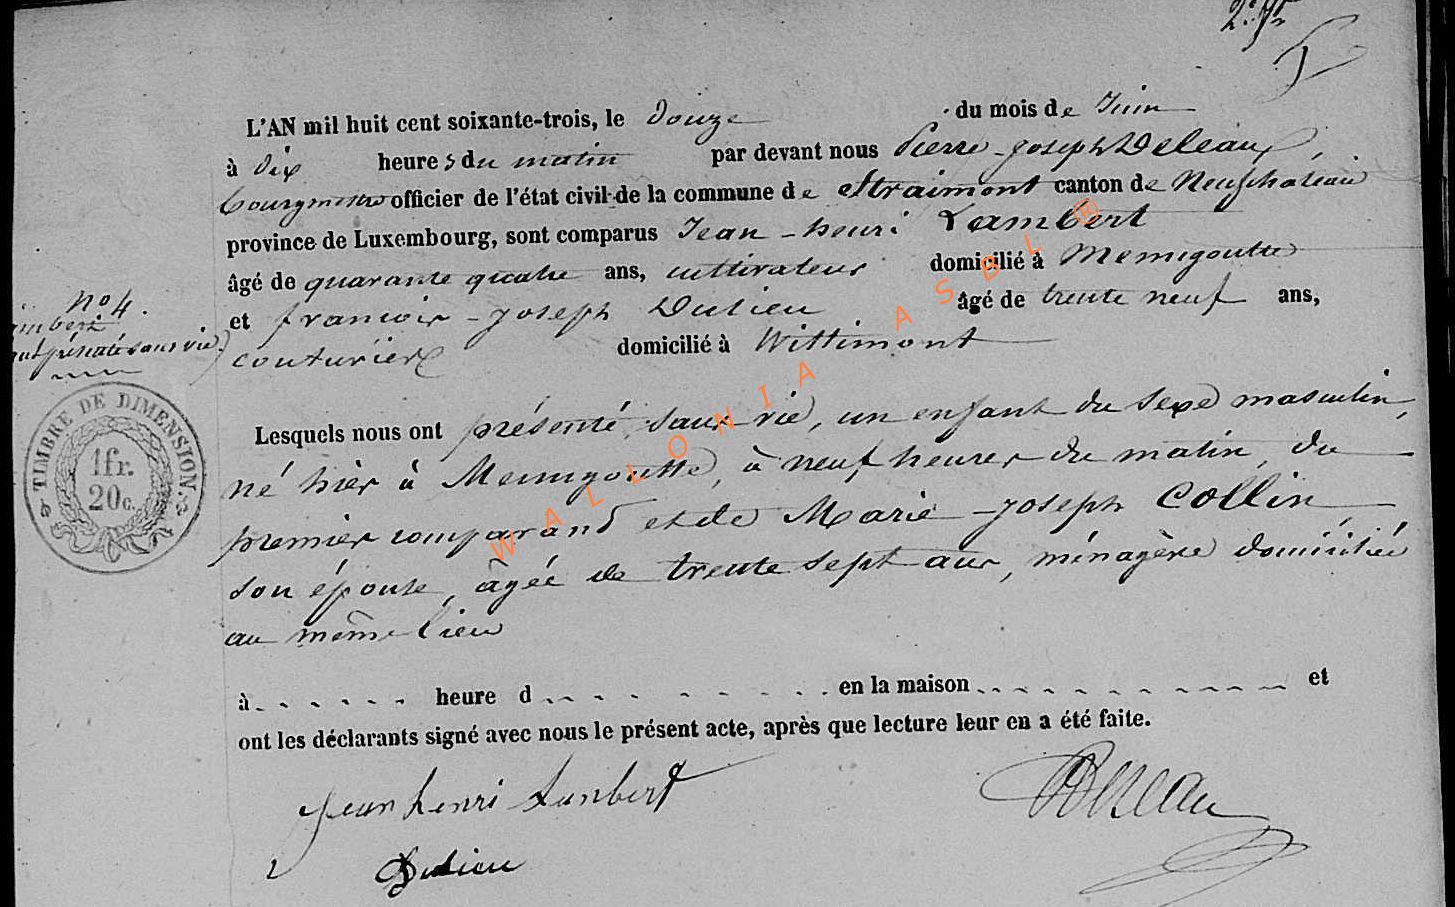 L'AN mil huit cent soixante-trois, le Douze du mois de Juin
à Dix heures du matin par devant nous Pierre-Joseph Deleau,
bourgmestre officier de l'état civil de la commune de Straimont canton de Neufchâteau
province de Luxembourg, sont comparus Jean-henri Lambert
âgé de quarante quatre ans, cultivateur domicilié à Menugoutte
et françois-Joseph Dulieu âgé de trente neuf ans,
couturier domicilié à Wittimont
Lesquels nous ont présenté, sans vie, un enfant du sexe masculin,
né hier à Menugoutte, à neuf heures du matin, du
premier comparant et de Marie-Joseph Collin
son épouse, âgée de trente sept ans, ménagère domiciliée
au même lieu
à heure d en la maison et
ont les déclarants signé avec nous le présent acte, après que lecture leur en a été faite.
Jean henri Lambert
Dulieu
No 4.
présenté sans vie)
TIMBRE DE DIMENSION
1fr.
20c.
WALLONIA ASBL ®